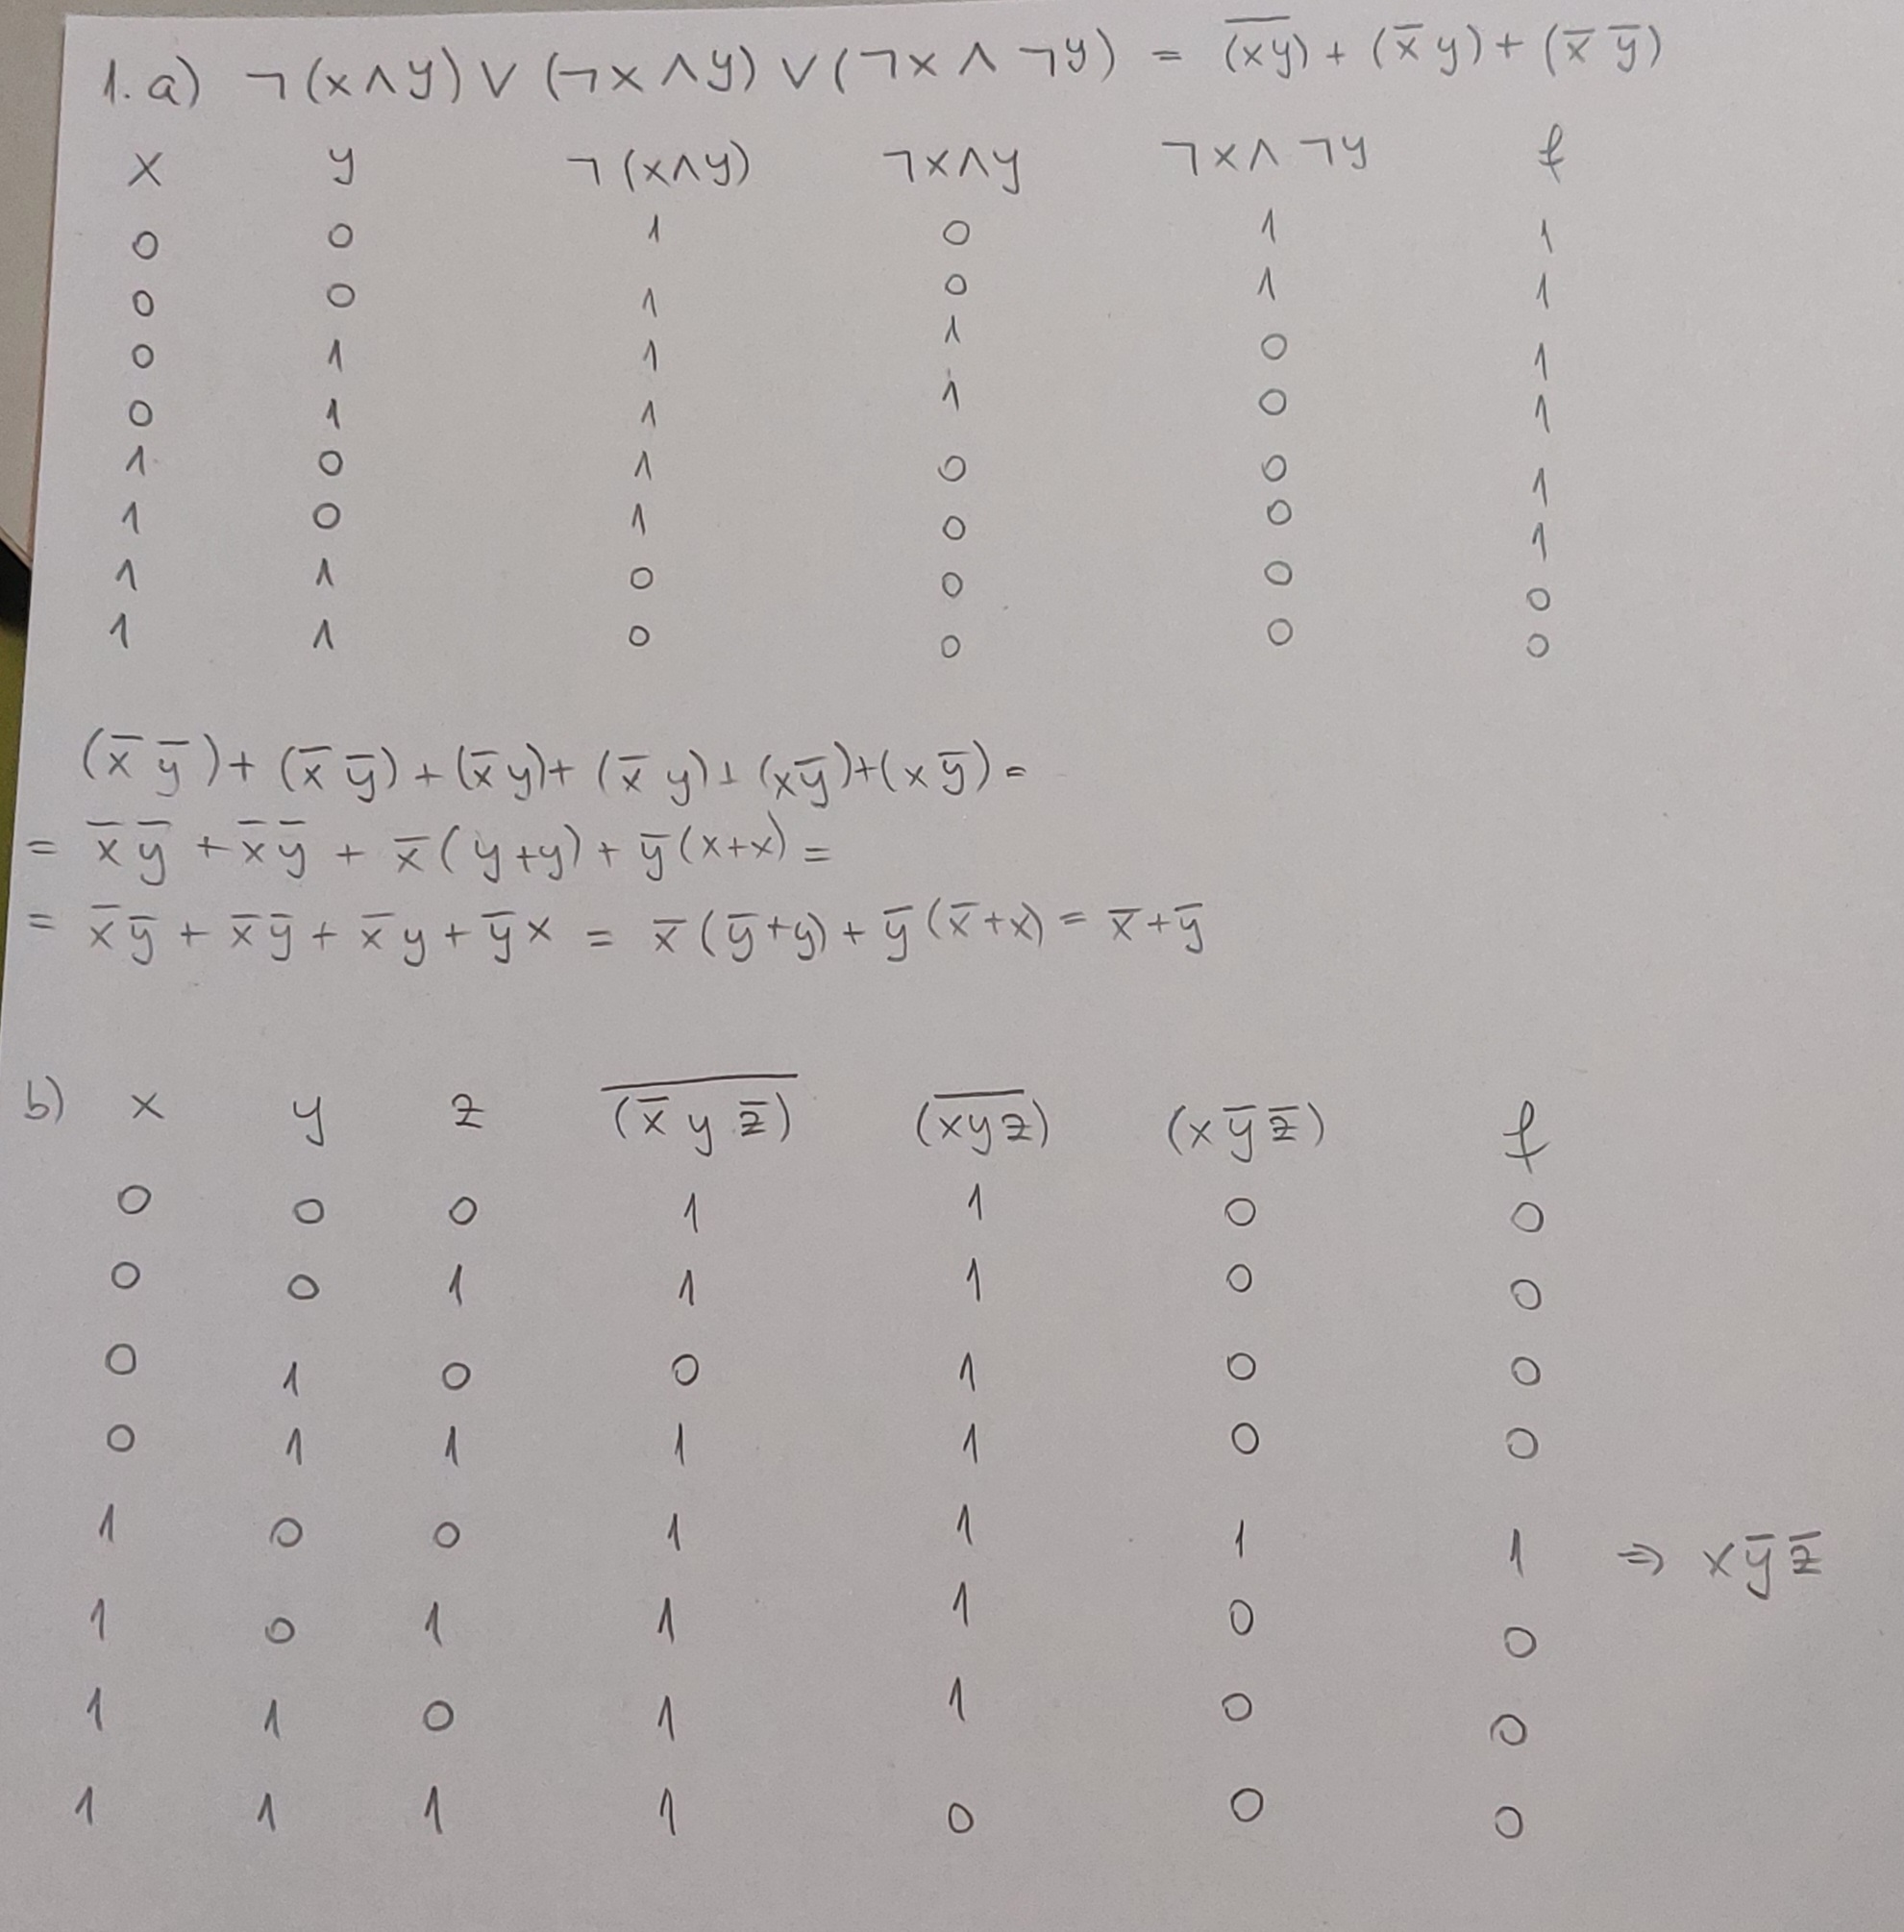 1. a) ¬(x∧y) ∨ (¬x∧y) ∨ (¬x ∧ ¬y) = \overline{(xy)} + (x̄ y) + (x̄ ȳ)
x y ¬(x∧y) ¬x∧y ¬x∧ ¬y f
0 0 1 0 1 1
0 0 1 0 1 1
0 1 1 1 0 1
0 1 1 1 0 1
1 0 1 0 0 1
1 0 1 0 0 1
1 1 0 0 0 0
1 1 0 0 0 0
(x̄ ȳ) + (x̄ ȳ) + (x̄ y) + (x̄ y) + (xȳ) + (xȳ) =
= x̄ȳ + x̄ȳ + x̄(y+y) + ȳ(x+x) =
= x̄ȳ + x̄ȳ + x̄y + ȳx = x̄(ȳ+y) + ȳ(x̄+x) = x̄+ȳ
b) x y z \overline{(x̄ y z̄)} (\overline{xyz}) (xȳz̄) f
0 0 0 1 1 0 0
0 0 1 1 1 0 0
0 1 0 0 1 0 0
0 1 1 1 1 0 0
1 0 0 1 1 1 1 ⇒ xȳz̄
1 0 1 1 1 0 0
1 1 0 1 1 0 0
1 1 1 1 0 0 0